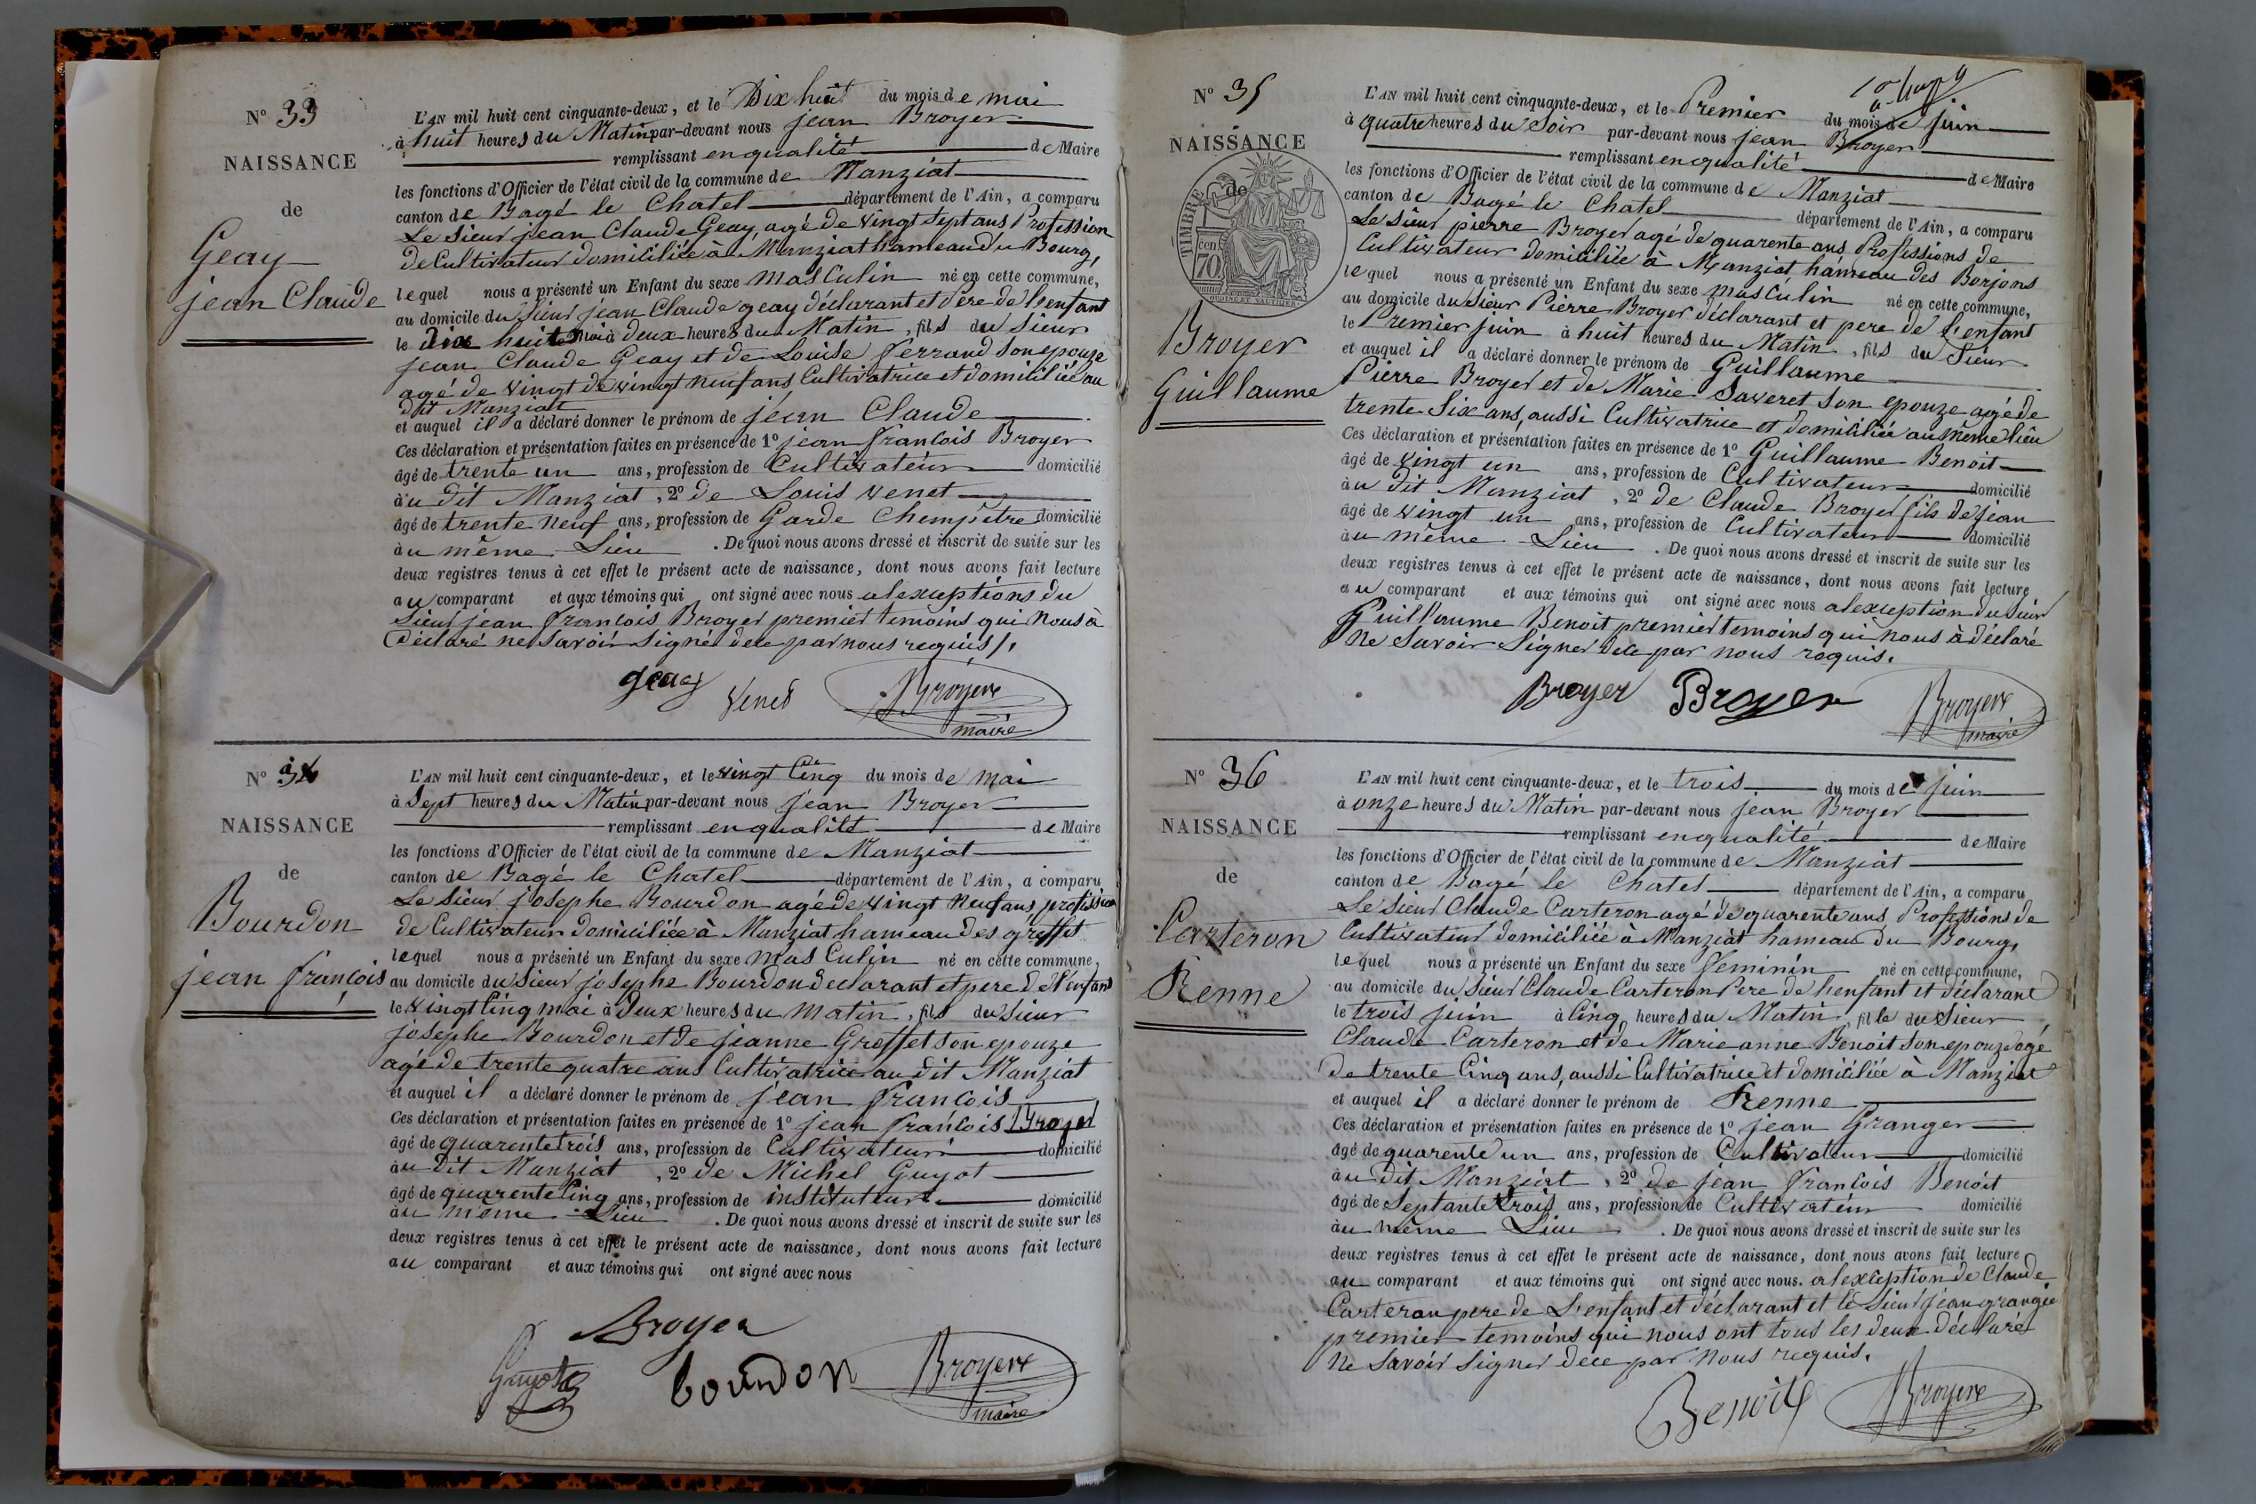 N° 33
NAISSANCE
de
Geay
jean Claude
L'AN mil huit cent cinquante-deux, et le Dix huit du mois de mai
à huit heures du Matin par-devant nous jean Broyer
remplissant en qualité de Maire
les fonctions d'Officier de l'état civil de la commune de Manziat
canton de Bagé le Chatel département de l'Ain, a comparu
Le Sieur jean Claude Geay, agé de vingt sept ans Profession
de Cultivateur domiciliée à Manziat hameau du Bourg,
lequel nous a présenté un Enfant du sexe masculin né en cette commune,
au domicile du Sieur jean Claude geay déclarant et père de l'enfant
le dix huit mai à deux heures du Matin, fils du Sieur
jean Claude Geay et de Louise ferrand son epouze
agé de vingt de vingt neuf ans Cultivatrice et domiciliée au
dit Manziat
et auquel il a déclaré donner le prénom de jean Claude
Ces déclaration et présentation faites en présence de 1° jean francois Broyer
âgé de trente un ans, profession de Cultivateur domicilié
au dit Manziat, 2° de Louis venet
âgé de trente neuf ans, profession de Garde Chempêtre domicilié
au même Lieu. De quoi nous avons dressé et inscrit de suite sur les
deux registres tenus à cet effet le présent acte de naissance, dont nous avons fait lecture
au comparant et aux témoins qui ont signé avec nous alexceptions du
Sieur jean francois Broyer premier temoins qui nous à
déclaré ne savoir signé dece par nous requis/.
geay
Venet
Broyer
maire
N° 34
NAISSANCE
de
Bourdon
jean françois
L'AN mil huit cent cinquante-deux, et le vingt Cinq du mois de mai
à Sept heures du Matin par-devant nous jean Broyer
remplissant en qualité de Maire
les fonctions d'Officier de l'état civil de la commune de Manziat
canton de Bagé le Chatel département de l'Ain, a comparu
Le Sieur josephe Bourdon agé de vingt neuf ans profession
de Cultivateur domiciliée à Manziat hameau des greffet
lequel nous a présenté un Enfant du sexe masculin né en cette commune,
au domicile du Sieur josephe Bourdon declarant et pere de l'enfant
le vingt Cinq mai à deux heures du matin, fils du Sieur
josephe Bourdon et de jeanne Greffet son epouze
agé de trente quatre ans Cultivatrice au dit Manziat
et auquel il a déclaré donner le prénom de jean francois
Ces déclaration et présentation faites en présence de 1° jean francois Broyer
âgé de quarente trois ans, profession de Cultivateur domicilié
au dit Manziat, 2° de Michel Guyot
âgé de quarente Cinq ans, profession de instituteur domicilié
au même Lieu. De quoi nous avons dressé et inscrit de suite sur les
deux registres tenus à cet effet le présent acte de naissance, dont nous avons fait lecture
au comparant et aux témoins qui ont signé avec nous
Broyer
Guyot
bourdon
Broyer
maire
N° 35
NAISSANCE
de
TIMBRE
cen
70
Broyer
Guillaume
L'AN mil huit cent cinquante-deux, et le Premier du mois de juin
à quatre heures du Soir par-devant nous jean Broyer
remplissant en qualité de Maire
les fonctions d'Officier de l'état civil de la commune de Manziat
canton de Bagé le Chatel département de l'Ain, a comparu
Le Sieur pierre Broyer agé de quarente ans Professions de
Cultivateur domiciliée à Manziat hameau des Borjons
lequel nous a présenté un Enfant du sexe masculin né en cette commune,
au domicile du Sieur Pierre Broyer déclarant et pere de l'enfant
le Premier juin à huit heures du Matin, fils du Sieur
et auquel il a déclaré donner le prénom de Guillaume
Pierre Broyer et de Marie Saveret son epouze agé de
trente Six ans, aussi Cultivatrice et domiciliée au même lieu
Ces déclaration et présentation faites en présence de 1° Guillaume Benoit
âgé de vingt un ans, profession de Cultivateur domicilié
au dit Manziat, 2° de Claude Broyer fils de jean
âgé de vingt un ans, profession de Cultivateur domicilié
au même Lieu. De quoi nous avons dressé et inscrit de suite sur les
deux registres tenus à cet effet le présent acte de naissance, dont nous avons fait lecture
au comparant et aux témoins qui ont signé avec nous alexception du Sieur
Guillaume Benoit premier temoins qui nous à déclaré
ne savoir signer dece par nous requis.
Broyer
Broyer
Broyer
maire
N° 36
NAISSANCE
de
Carteron
Renne
L'AN mil huit cent cinquante-deux, et le trois du mois de juin
à onze heures du Matin par-devant nous jean Broyer
remplissant en qualité de Maire
les fonctions d'Officier de l'état civil de la commune de Manziat
canton de Bagé le Chatel département de l'Ain, a comparu
Le Sieur Claude Carteron agé de quarente ans Professions de
Cultivateur domiciliée à Manziat hameau du Bourg,
lequel nous a présenté un Enfant du sexe feminin né en cette commune,
au domicile du Sieur Claude Carteron Pere de l'enfant et déclarant
le trois juin à Cinq heures du Matin, fille du Sieur
Claude Carteron et de Marie anne Benoit son epouze agé
de trente Cinq ans, aussi Cultivatrice et domiciliée à Manziat
et auquel il a déclaré donner le prénom de Renne
Ces déclaration et présentation faites en présence de 1° jean Granger
âgé de quarente un ans, profession de Cultivateur domicilié
au dit Manziat, 2° de jean francois Benoit
âgé de Septante trois ans, profession de Cultivateur domicilié
au même Lieu. De quoi nous avons dressé et inscrit de suite sur les
deux registres tenus à cet effet le présent acte de naissance, dont nous avons fait lecture
au comparant et aux témoins qui ont signé avec nous. alexception de Claude
Carteron pere de L'enfant et déclarant et le Sieur jean granger
premier temoins qui nous ont tous les deux déclaré
ne savoir signer dece par nous requis.
Benoit
Broyer